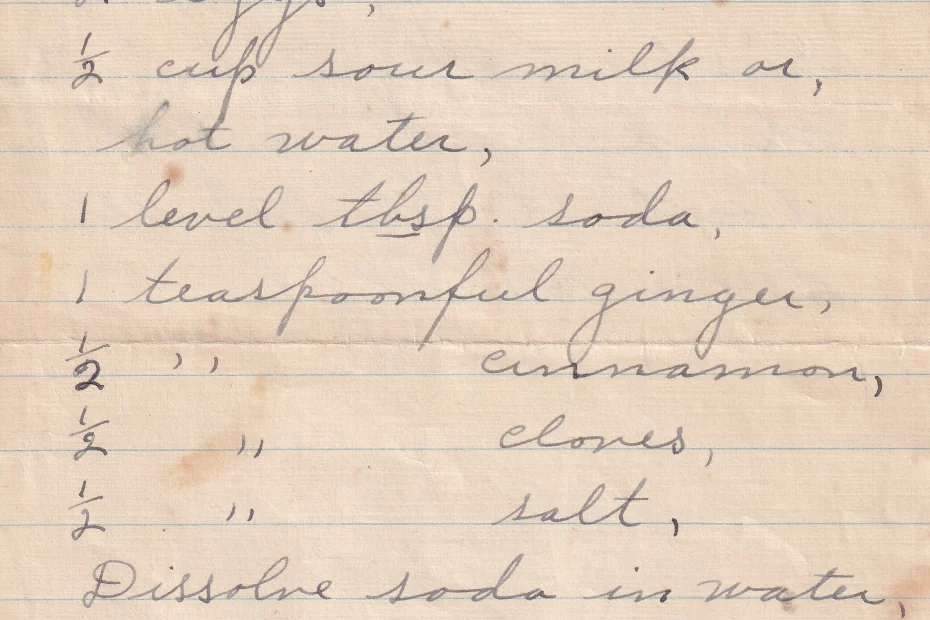 eggs,
½ cup sour milk or,
hot water,
1 level tbsp. soda,
1 teaspoonful ginger,
½ ,, cinnamon,
½ ,, cloves,
½ ,, salt,
Dissolve soda in water,